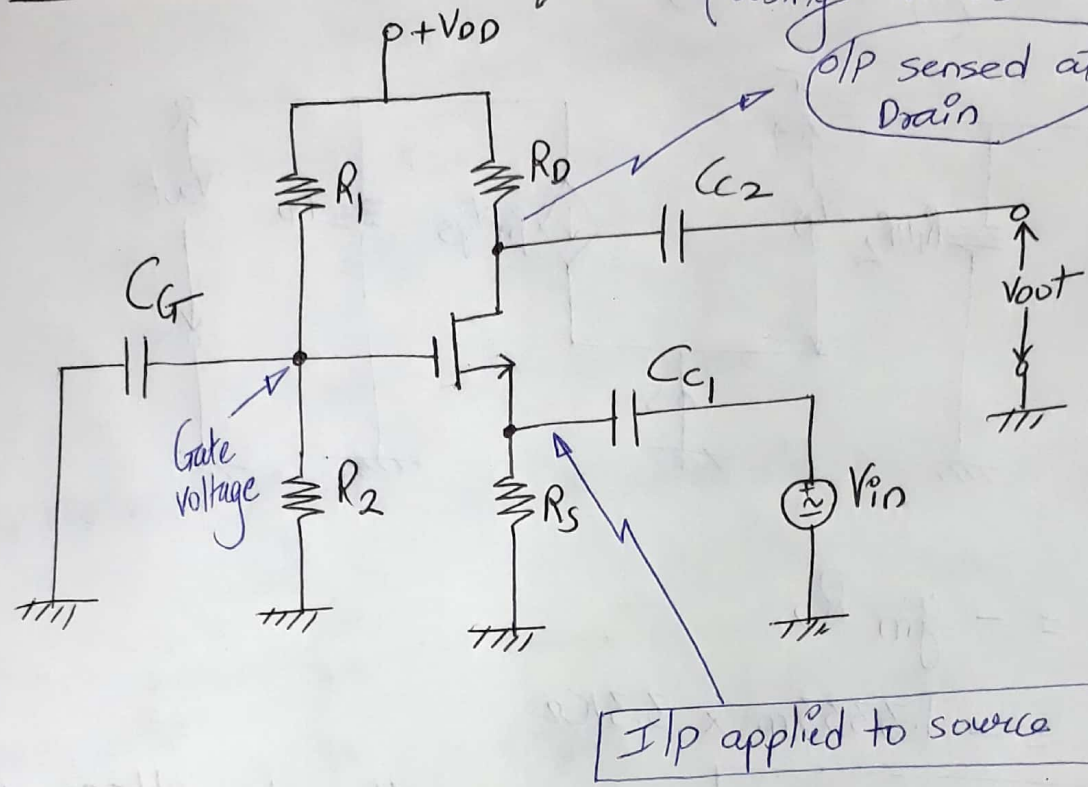 +VDD
O/P sensed
Drain
R1
RD
CC2
CG
Vout
CC1
Gate
voltage
R2
RS
Vin
I/p applied to source